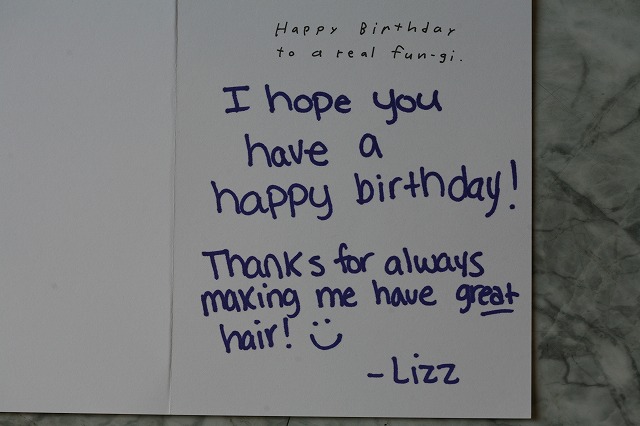 Happy Birthday
to a real fun-gi.
I hope you
have a
happy birthday!
Thanks for always
making me have great
hair! :)
-Lizz